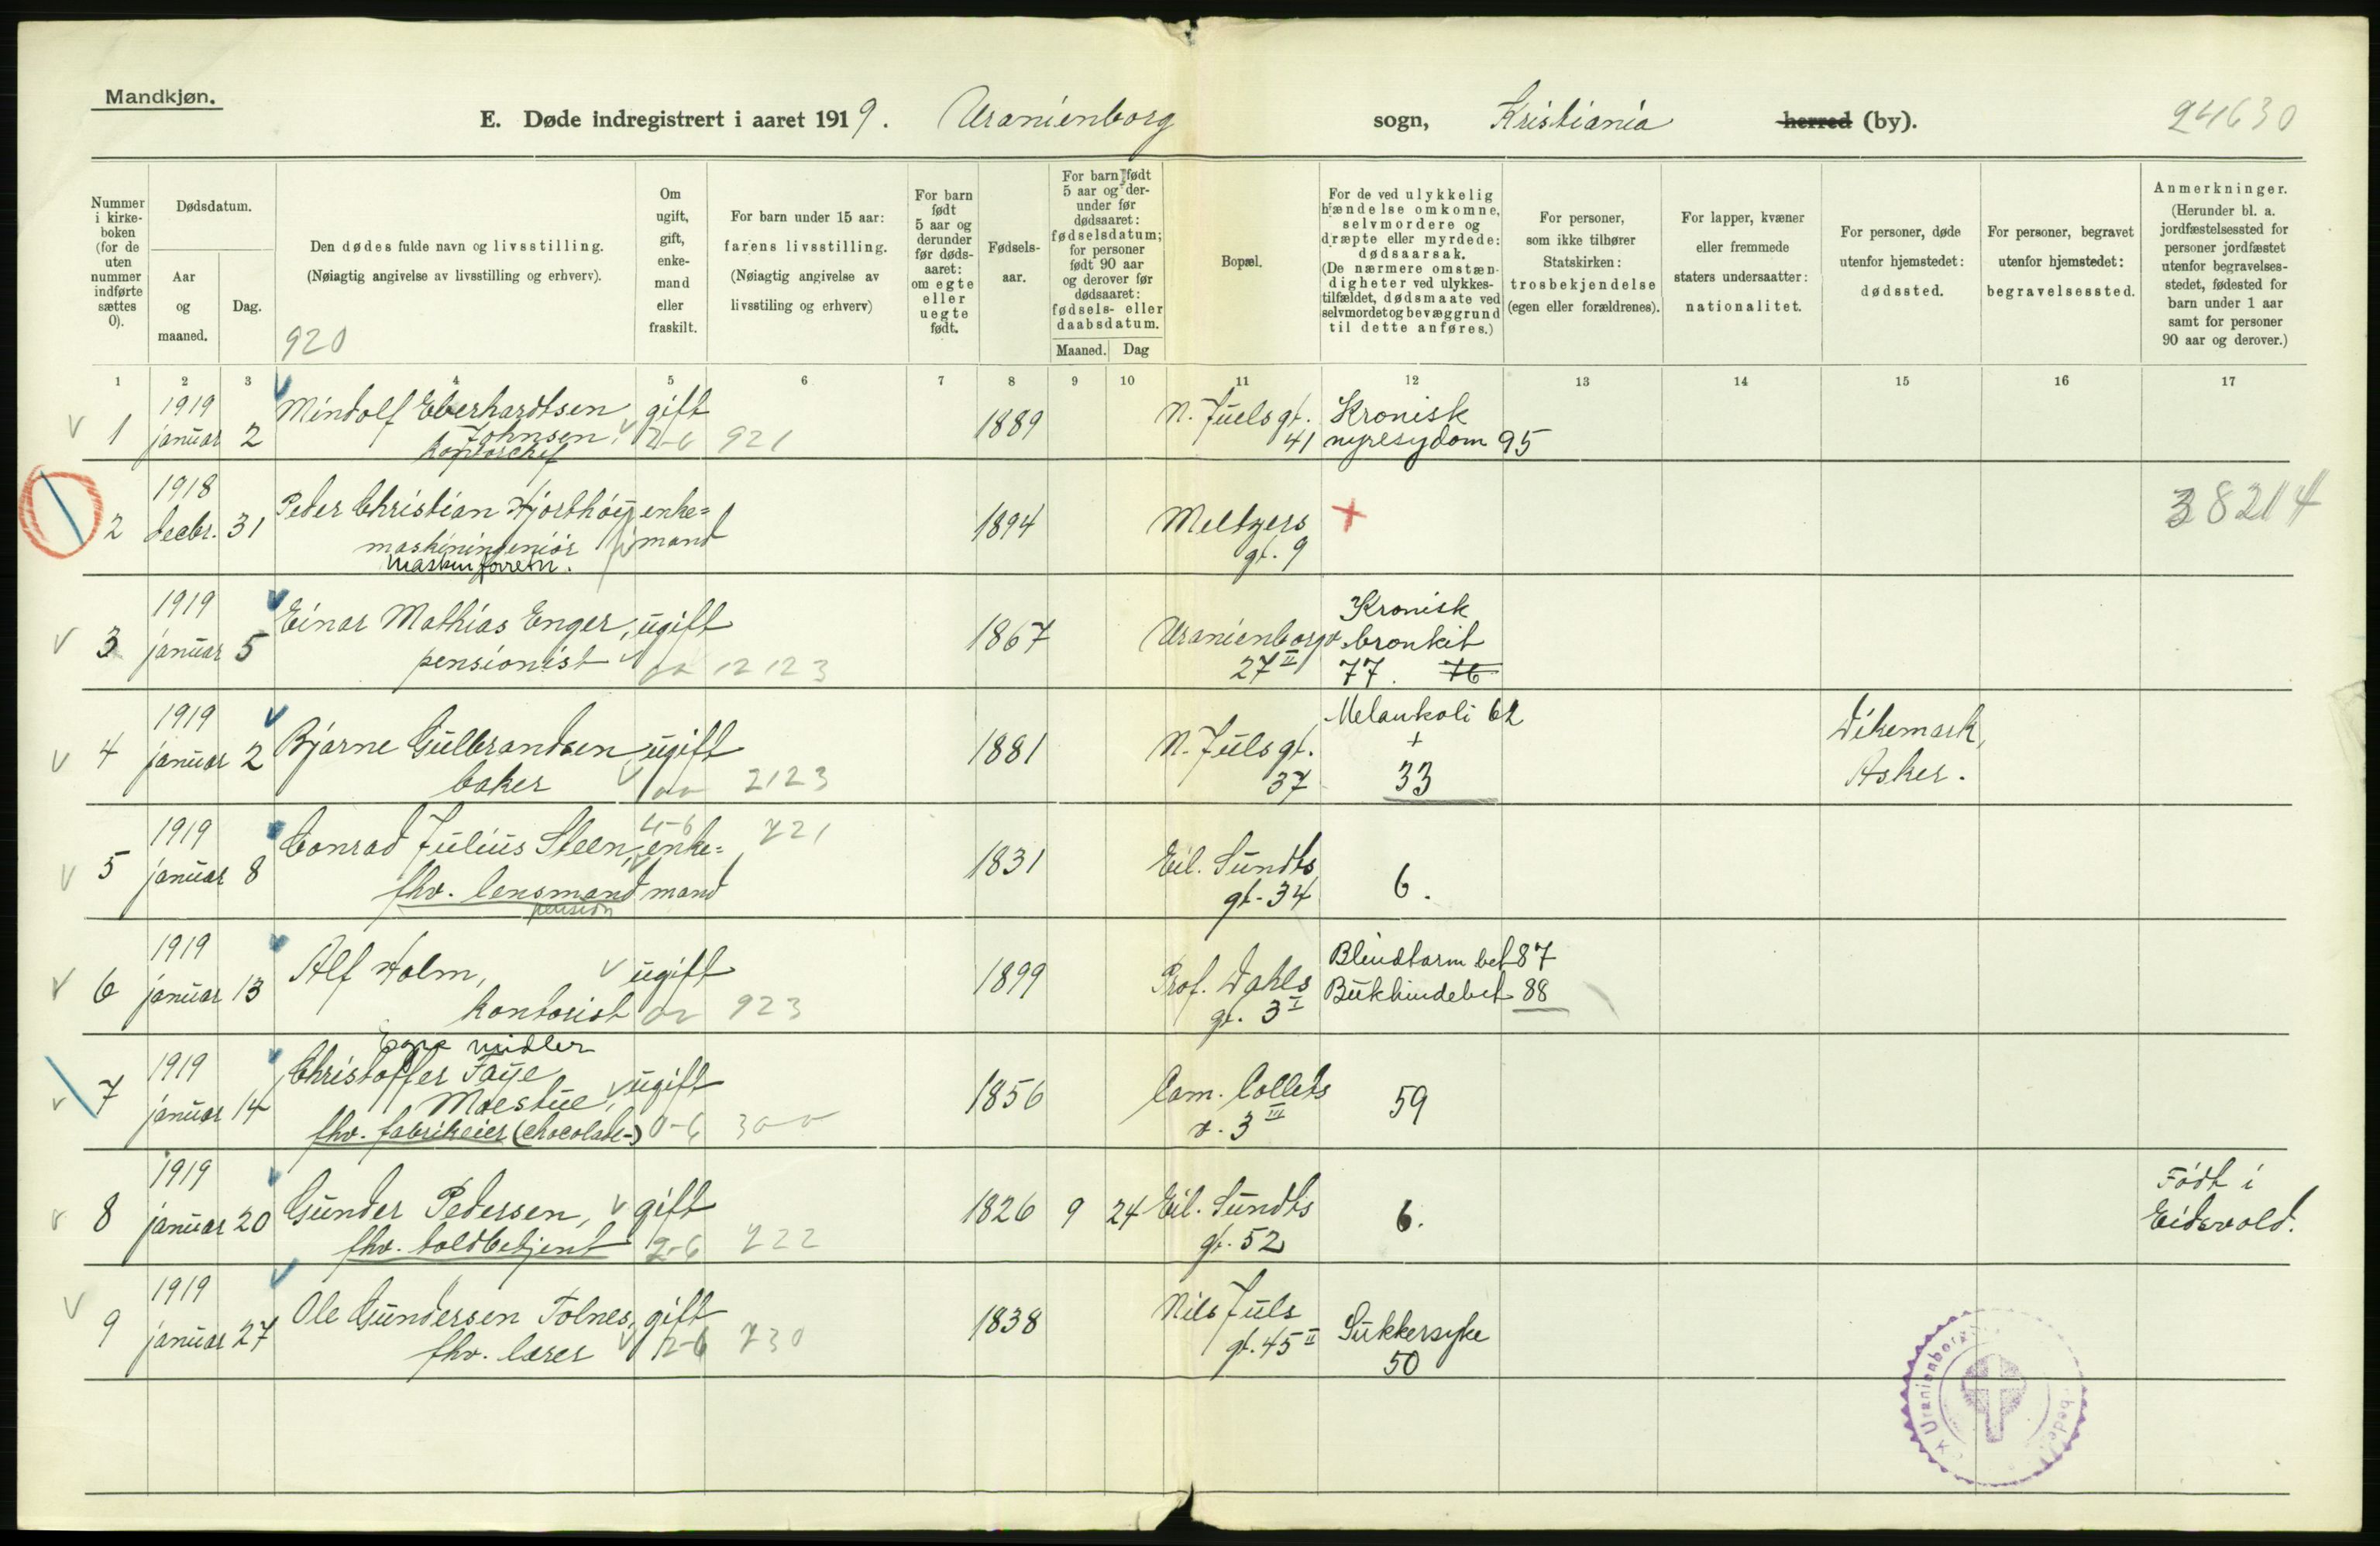 Mandkjøn.
E. Døde indregistrert i aaret 1919. Uranienborg sogn, Kristiania herred (by). 24630
Nummer i kirke- boken (for de uten nummer indførte sættes 0).
Dødsdatum.
Aar og maaned.
Dag.
Den dødes fulde navn og livsstilling.
(Nøiagtig angivelse av livsstilling og erhverv).
920
Om ugift, gift, enke- mand eller fraskilt.
For barn under 15 aar: farens livsstilling.
(Nøiagtig angivelse av livsstiling og erhverv)
For barn født 5 aar og derunder før døds- aaret: om egte eller uegte født.
Fødsels- aar.
For barn født 5 aar og der- under før dødsaaret: fødselsdatum; for personer født 90 aar og derover før dødsaaret: fødsels- eller daabsdatum.
Maaned. Dag
Bopæl.
For de ved ulykkelig hændelse omkomne, selvmordere og dræpte eller myrdede: dødsaarsak.
(De nærmere omstæn- digheter ved ulykkes- tilfældet, dødsmaate ved selvmordet og bevæggrund til dette anføres.)
For personer, som ikke tilhører Statskirken: trosbekjendelse (egen eller forældrenes).
For lapper, kvæner eller fremmede staters undersaatter: nationalitet.
For personer, døde utenfor hjemstedet: dødssted.
For personer, begravet utenfor hjemstedet: begravelsessted.
Anmerkninger.
(Herunder bl. a. jordfæstelsessted for personer jordfæstet utenfor begravelses- stedet, fødested for barn under 1 aar samt for personer 90 aar og derover.)
1 2 3 4 5 6 7 8 9 10 11 12 13 14 15 16 17
1919
1 januar 2 Mindolf Eberhardtsen Johnsen, gift 1889 N. Juels gt. 41 Kronisk nyresydom 95
kontorchef 2-6 921
1918
2 decbr. 31 Peder Christian Hjorthøy, enke= mand 1894 Meltzers gt. 9 + 38214
maskiningeniør
maskinforretn.
1919
3 januar 5 Einar Mathias Enger, ugift 1867 Uranienborgv. 27 II Kronisk bronkit
pensionist 12123 77. 76
1919
4 januar 2 Bjarne Gulbrandsen, ugift 1881 N. Juls gt. 37 Melankoli 62 + 33 Dikemark, Asker.
baker 2123
1919
5 januar 8 Conrad Julius Steen, enke= mand 4-6 721 1831 Eil. Sundts gt. 34 6.
fhv. lensmand
pension
1919
6 januar 13 Alf Holm, ugift 1899 Prof. Dahls gt. 3 I Blindtarm bet 87
kontorist 923 Bukhindebet 88
Egne midler
1919
7 januar 14 Christoffer Faye Moestue, ugift 1856 Cam. Colletts v. 3 III 59
fhv. fabrikeier (chocolade-) 0-6 300
1919
8 januar 20 Gunder Pedersen, gift 1826 9 24 Eil. Sundts gt. 52 6. Født i Eidsvold.
fhv. toldbetjent 2-6 722
1919
9 januar 27 Ole Gundersen Tolnes, gift 1838 Nils Juls gt. 45 II Sukkersyke 50
fhv. lærer 2-6 730
Uranienborg